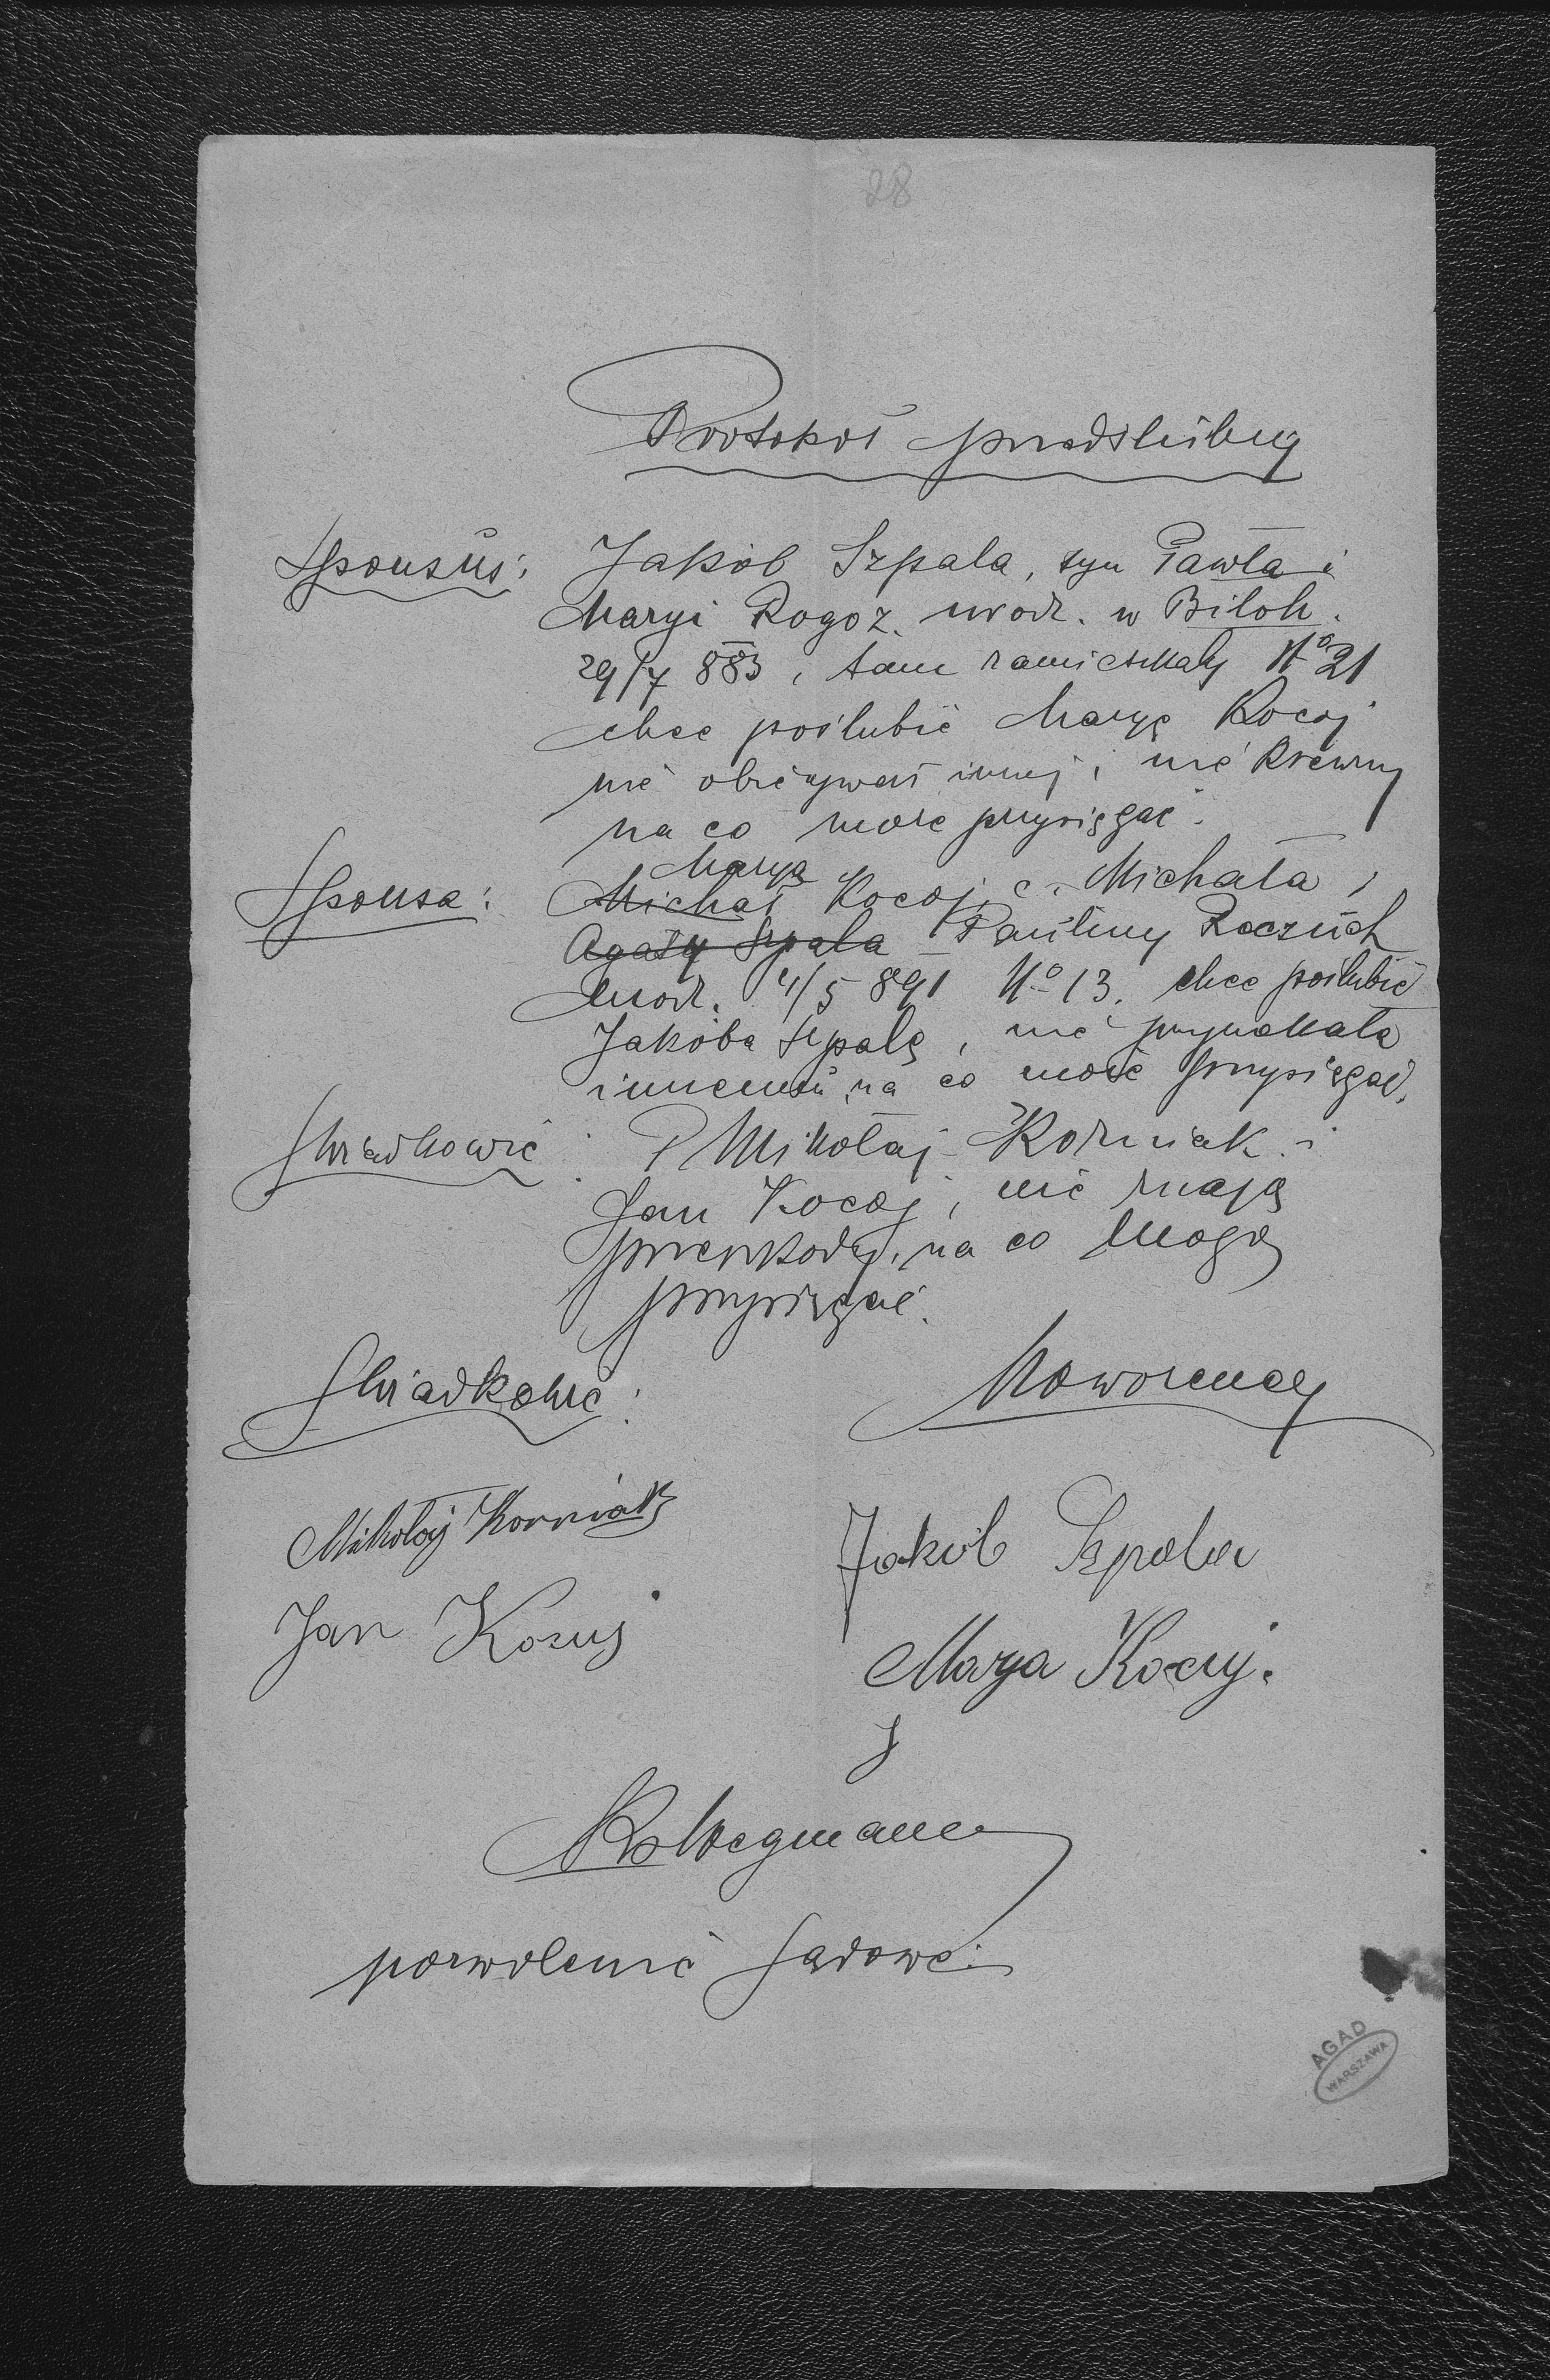 28
Protokół przedślubny
Sponsus: Jakób Szpala, syn Pawła i
Maryi Rogoz. urodz. w Biłoh.
29/7 883, tam zamieszkały No 21
chce poślubić Maryę Kocaj
nie obiecywał innej i nie krewny
na co może przysięgać.
Marya
Sponsa: Michał Kocaj c. Michała i
Agaty Szpala Pauliny Raczuch
urodz. 4/5 891 No 13. chce poślubić
Jakóba Szpalę, nie przyrzekała
innemu, na co może przysięgać.
Świadkowie: P Mikołaj Korniak i
Jan Kocaj, nie znają
przeszkody, na co mogą
przysięgać.
Świadkowie: Nowożeńcy
Mikołaj Korniak Jakób Szpala
Jan Kocuj Marya Kocuj.
Ks Wegmann
pozwolenie sądowe:
AGAD
WARSZAWA